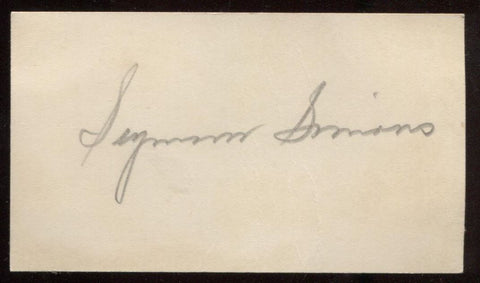 Seymour Simons